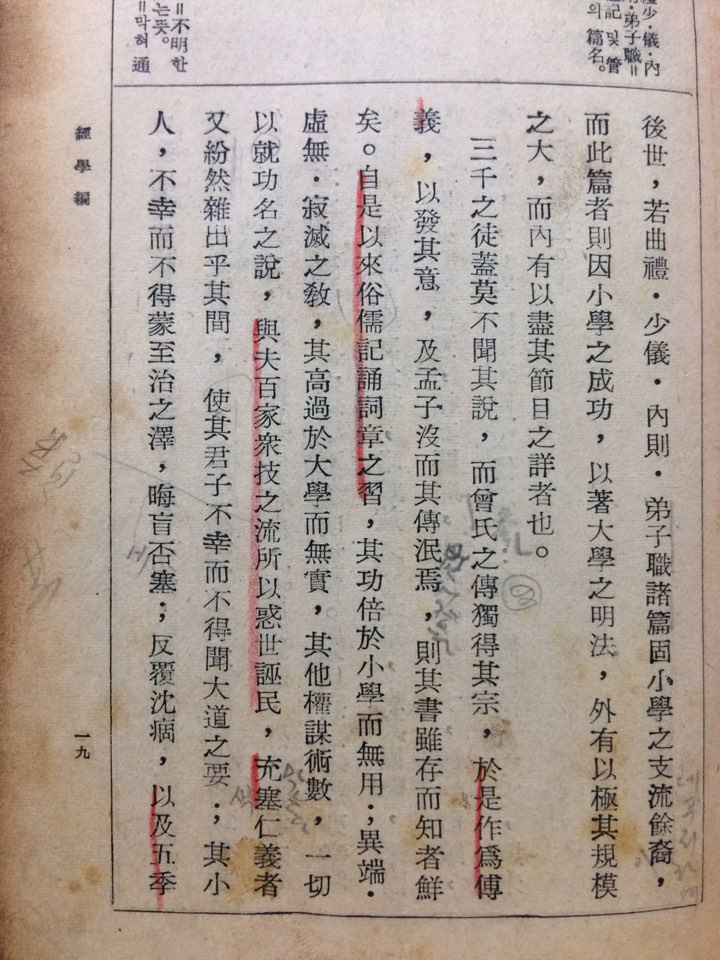 禮少·儀·內
弟子職=
記 및 管
의 篇名。
=不明한
는뜻。
=막혀 通
後世,若曲禮·少儀·內則·弟子職諸篇固小學之支流餘裔,
而此篇者則因小學之成功,以著大學之明法,外有以極其規模
之大,而內有以盡其節目之詳者也。
三千之徒蓋莫不聞其說,而曾氏之傳獨得其宗,於是作爲傅
義,以發其意,及孟子沒而其傳泯焉,則其書雖存而知者鮮
矣。自是以來俗儒記誦詞章之習,其功倍於小學而無用;異端·
虛無·寂滅之敎,其高過於大學而無實,其他權謀術數,一切
以就功名之說,與夫百家衆技之流所以惑世誣民,充塞仁義者
又紛然雜出乎其間,使其君子不幸而不得聞大道之要;其小
人,不幸而不得蒙至治之澤,晦盲否塞;反覆沈痼,以及五季
經學編
一九